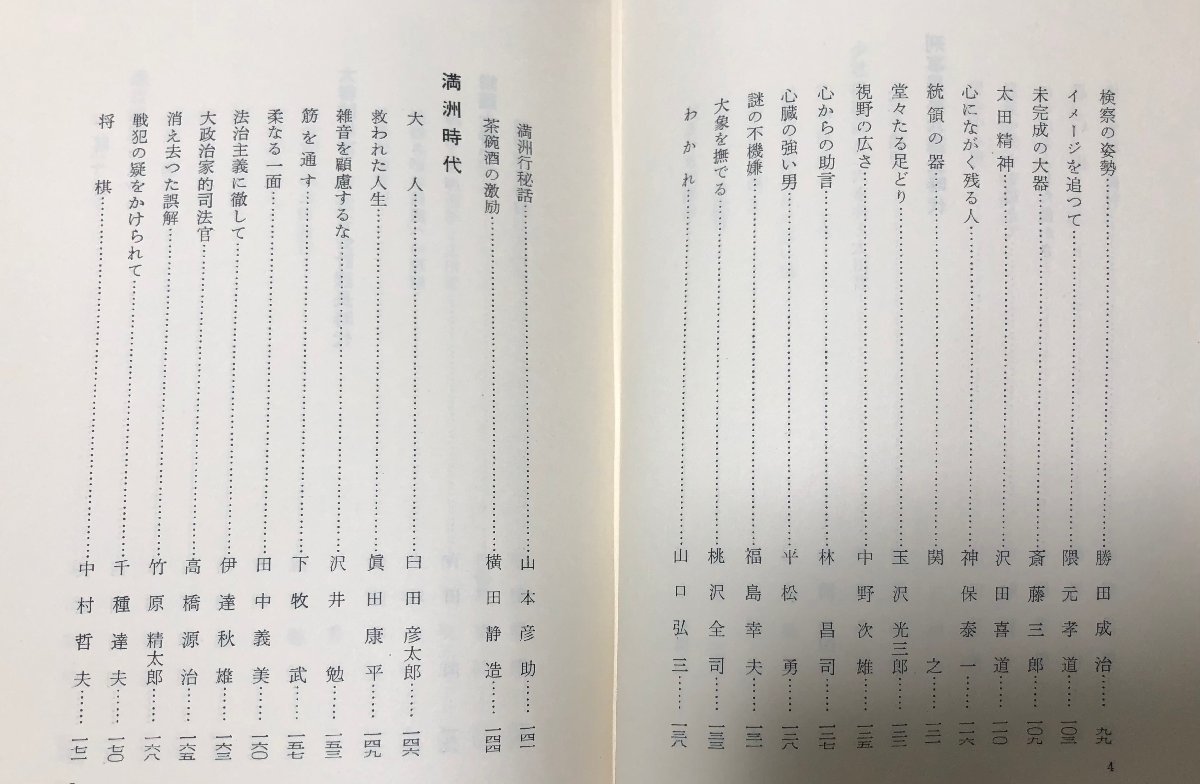 検察の姿勢……勝田成治……九九
イメージを追つて……隈元孝道……一〇三
未完成の大器……斎藤三郎……一〇九
太田精神……沢田喜道……一一〇
心にながく残る人……神保泰一……一一六
統領の器……関之……一二一
堂々たる足どり……玉沢光三郎……一二二
視野の広さ……中野次雄……一二五
心からの助言……林昌司……一二七
心臓の強い男……平松勇……一二八
謎の不機嫌……福島幸夫……一三一
大象を撫でる……桃沢全司……一三三
わかれ……山口弘三……一三八
4
満洲行秘話……山本彦助……一四一
茶碗酒の激励……横田静造……一四四
満洲時代
大人……臼田彦太郎……一四六
救われた人生……眞田康平……一四九
雑音を顧慮するな……沢井勉……一五三
筋を通す……下牧武……一五七
柔なる一面……田中義美……一六〇
法治主義に徹して……伊達秋雄……一六三
大政治家的司法官……高橋源治……一六五
消え去つた誤解……竹原精太郎……一六八
戦犯の疑をかけられて……千種達夫……一七〇
将棋……中村哲夫……一七二